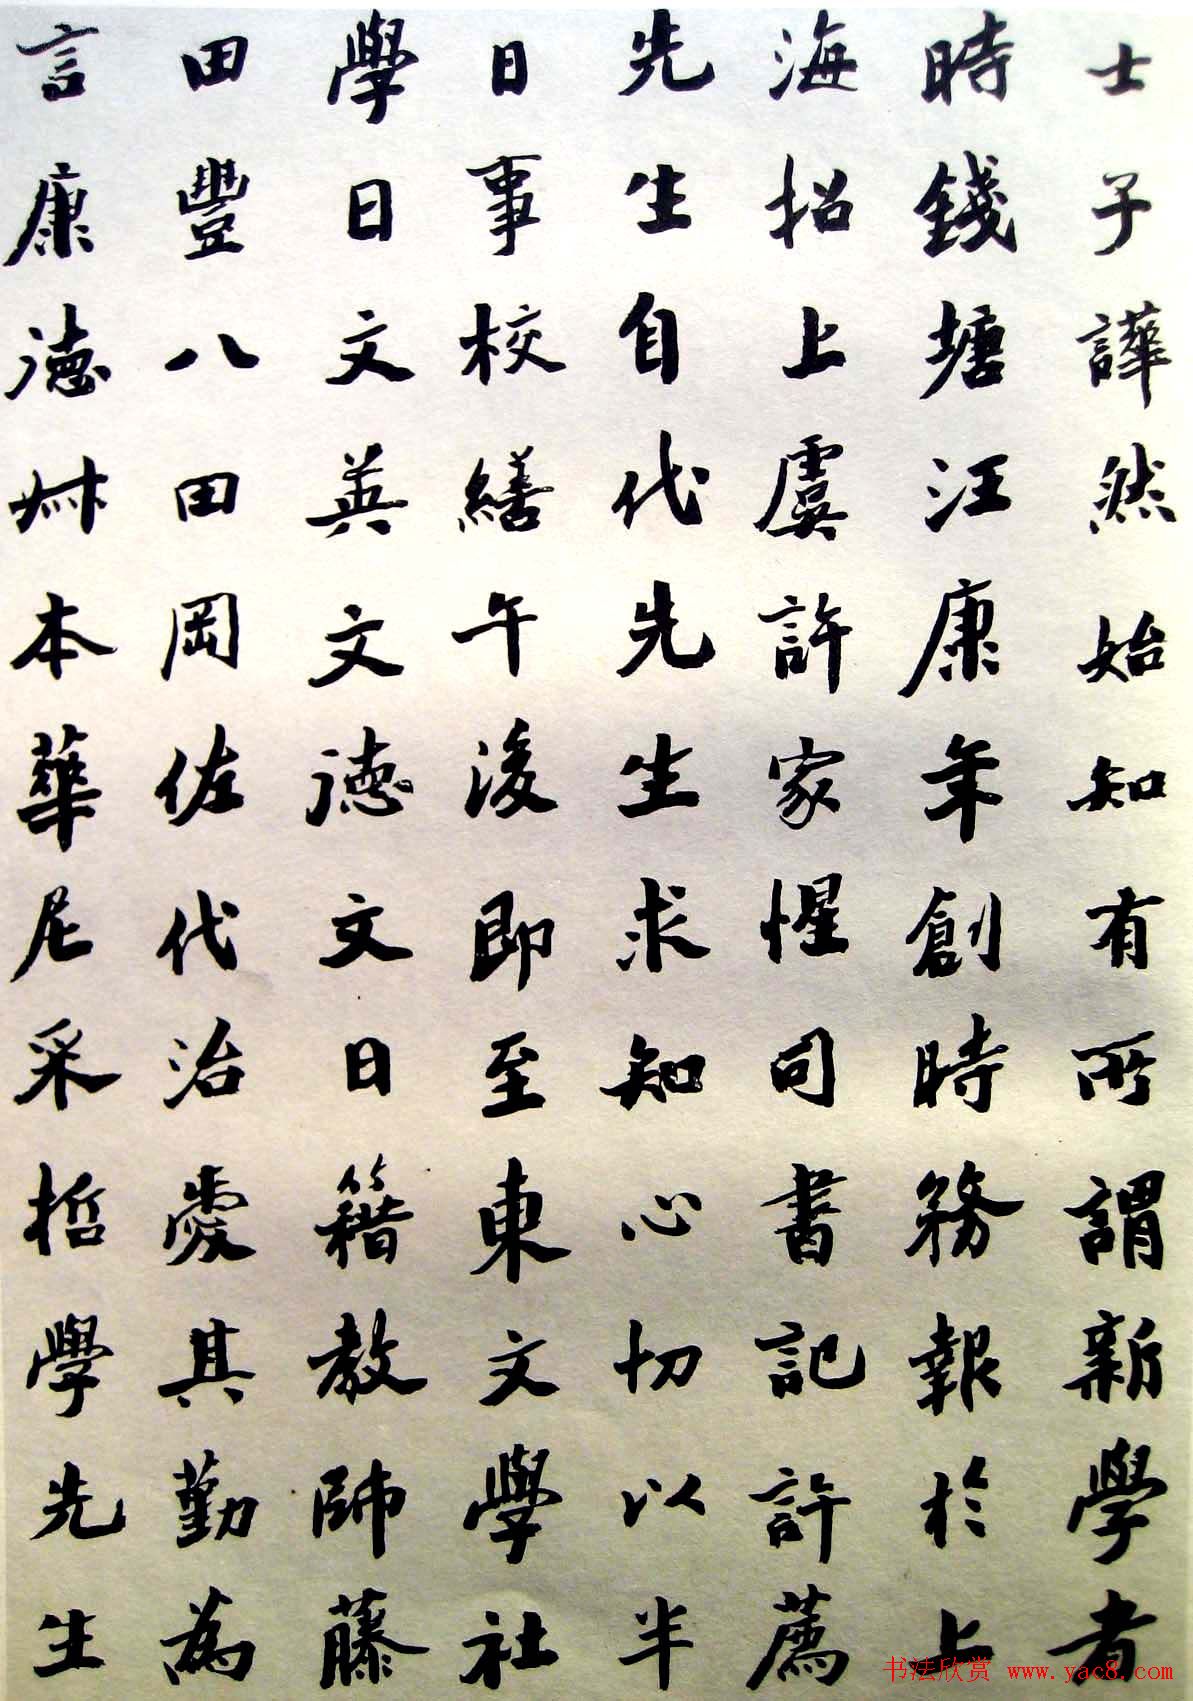 士子譁然始知有所謂新學者
時錢塘汪康年創時務報於上
海招上虞許家惺司書記許薦
先生自代先生求知心切以半
日事校繕午後即至東文學社
學日文英文德文日籍教師藤
田豐八田岡佐代治愛其勤為
言康德叔本華尼采哲學先生
书法欣赏 www.yac8.com